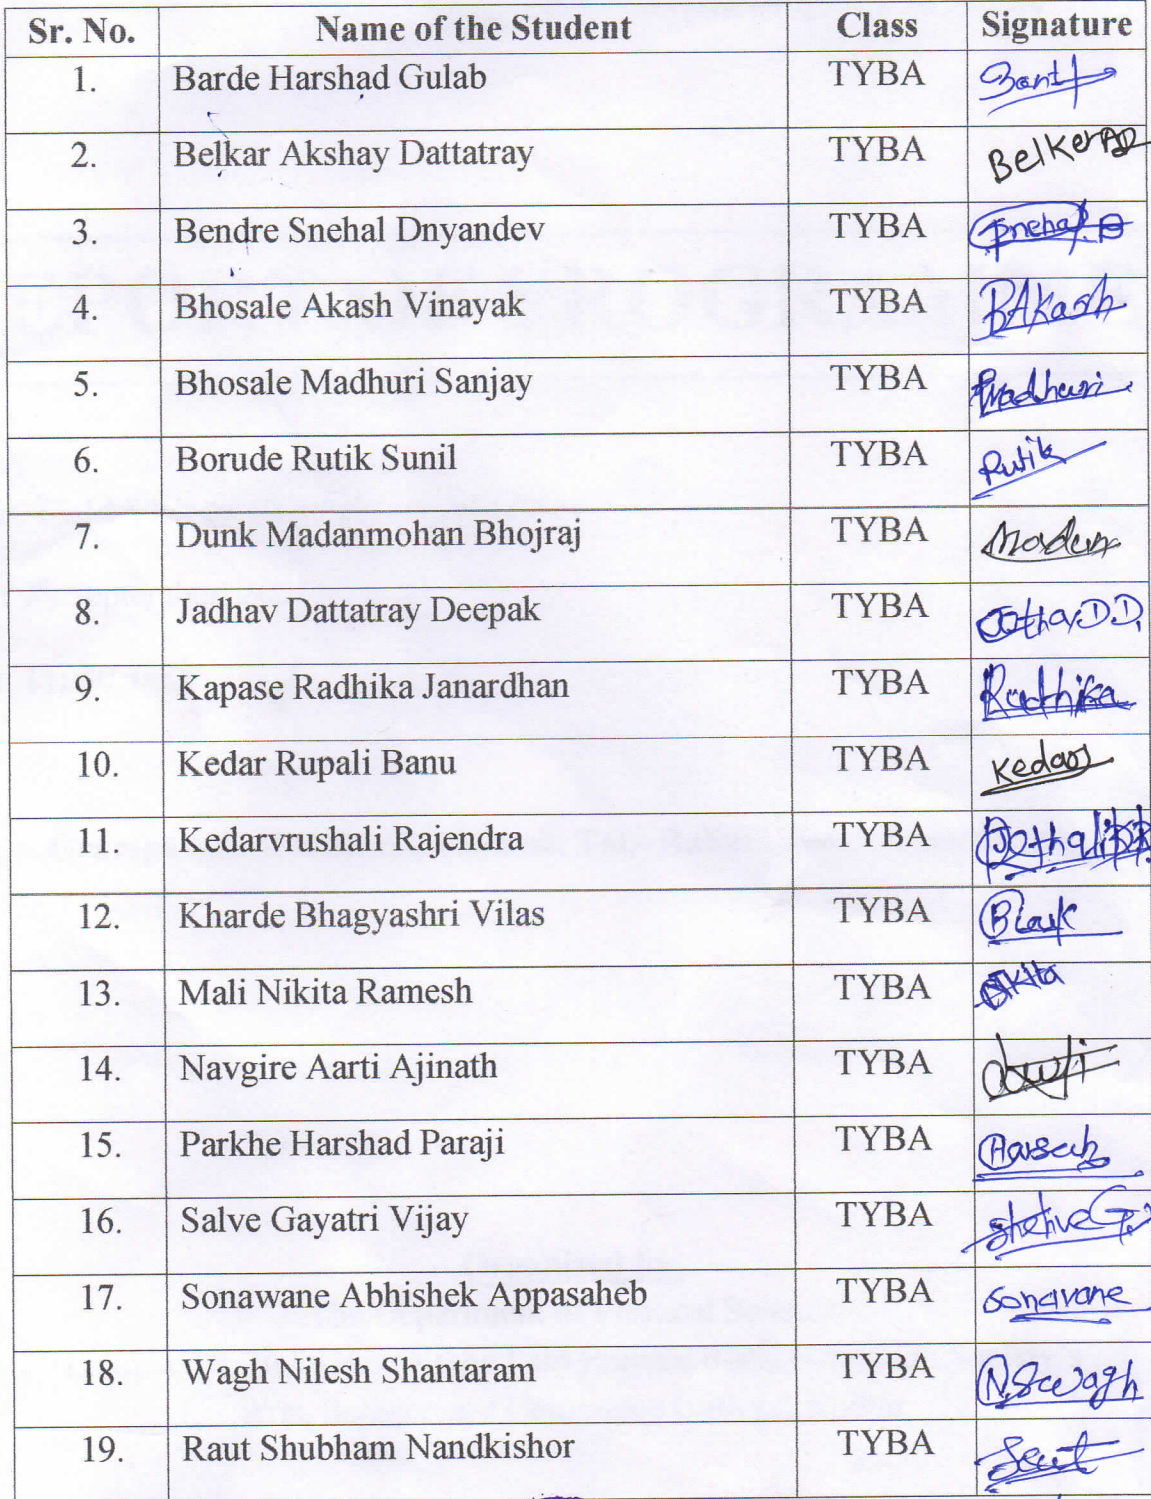 Sr. No. Name of the Student Class Signature
1. Barde Harshad Gulab TYBA
2. Belkar Akshay Dattatray TYBA Belker AD
3. Bendre Snehal Dnyandev TYBA
4. Bhosale Akash Vinayak TYBA BAkash
5. Bhosale Madhuri Sanjay TYBA Madhuri
6. Borude Rutik Sunil TYBA Rutik
7. Dunk Madanmohan Bhojraj TYBA
8. Jadhav Dattatray Deepak TYBA
9. Kapase Radhika Janardhan TYBA Radhika
10. Kedar Rupali Banu TYBA
11. Kedarvrushali Rajendra TYBA
12. Kharde Bhagyashri Vilas TYBA
13. Mali Nikita Ramesh TYBA
14. Navgire Aarti Ajinath TYBA
15. Parkhe Harshad Paraji TYBA
16. Salve Gayatri Vijay TYBA
17. Sonawane Abhishek Appasaheb TYBA Sonavane
18. Wagh Nilesh Shantaram TYBA
19. Raut Shubham Nandkishor TYBA